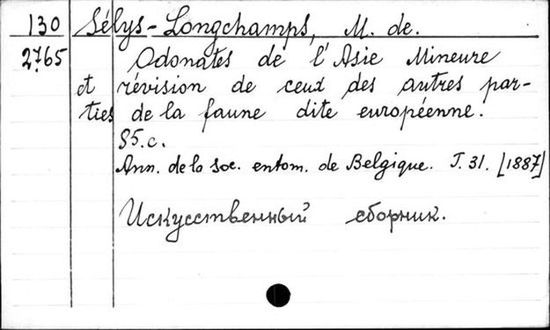 130 Sélys-Longchamps, M. de.
2765 Odonates de l'Asie Mineure
et révision de ceux des autres par-
ties de la faune dite européenne.
85 c.
Ann. de la Soc. entom. de Belgique. T. 31. [1887]
Искусственный сборник.